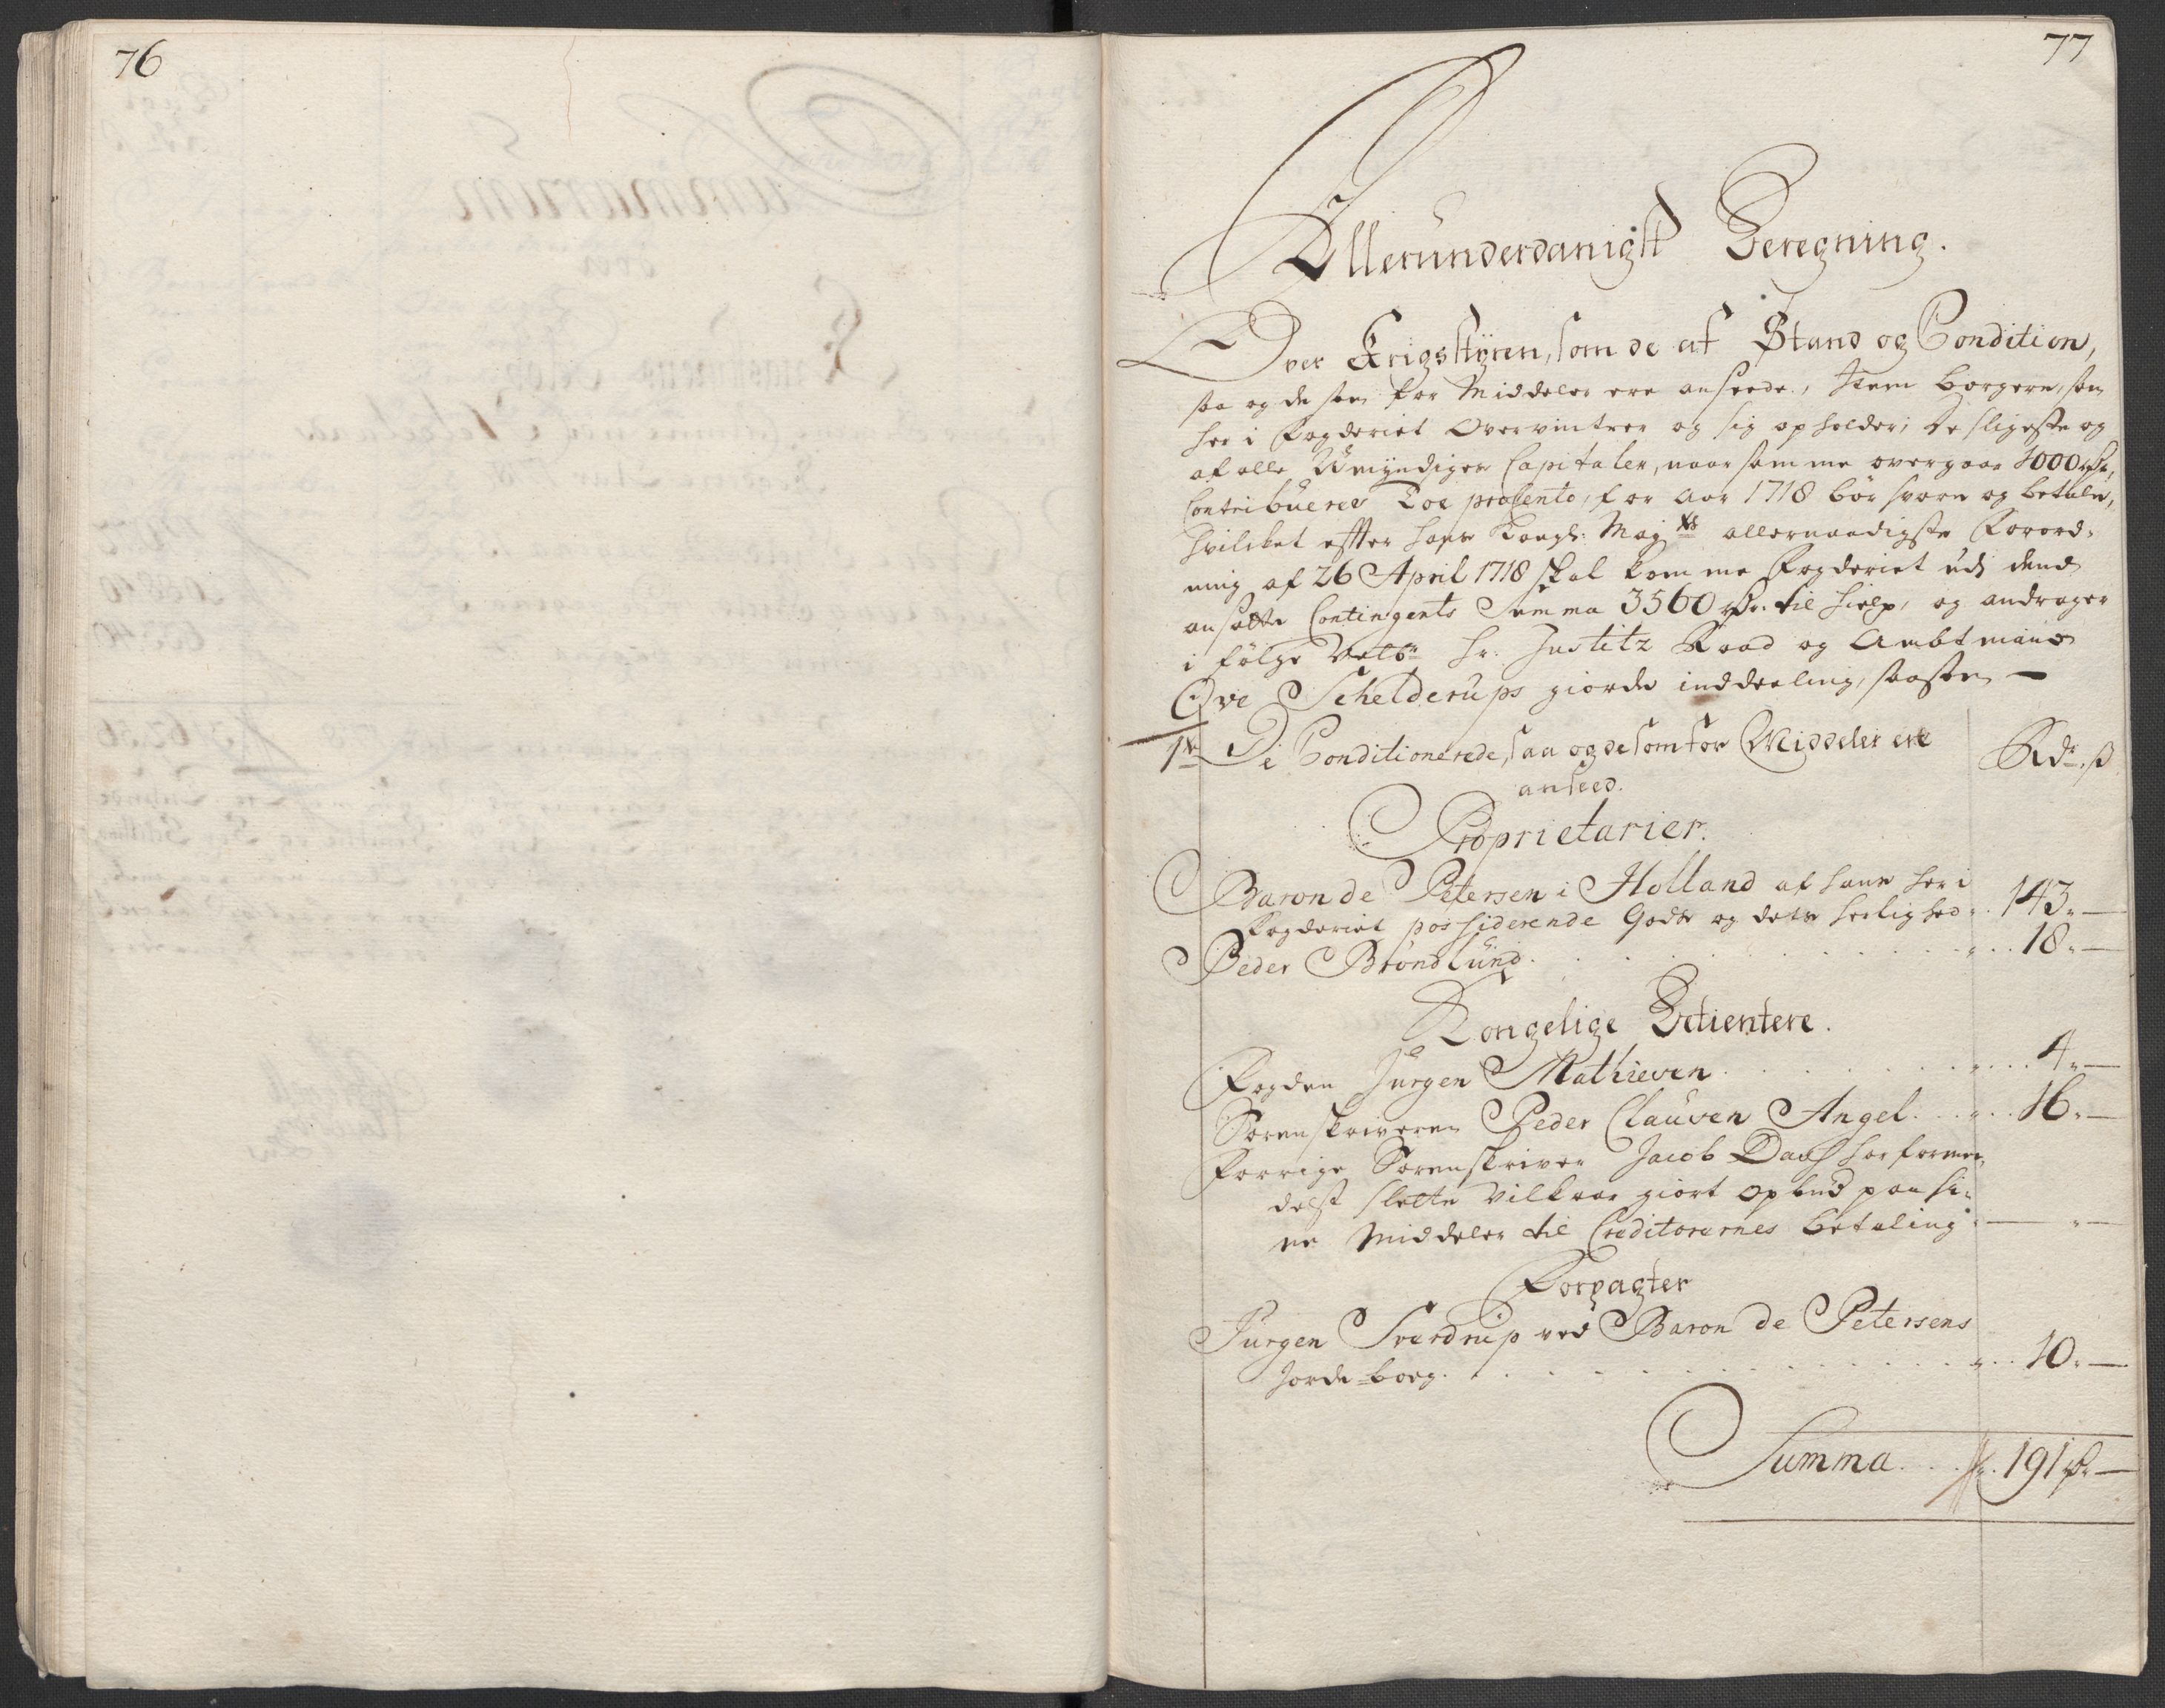 76
77
Allerunderdanigst Beregning.
Over Krigsstyren, som de af Stand og Condition,
saa og de som for Middeler ere anseede, Item borgere, som
her i Fogderiet Overvintrer og sig opholder, Desligeste og
af alle Umyndiges Capitaler, naar samme overgaar 1000 Rdr,
Contribueres Toe procento, for Aar 1718 bør svare og betale,
Hvilcket effter Hans Kongl: Maj:ts allernaadigste Forord-
ning af 26 April 1718 skal komme Fogderiet udj dend
ansatte Contingents Summa 3560 Rdr. til hielp, og andrager
i følge Hr. Justitz Raad og Ambtmand
Ove Schelderups giorde inddeeling, saasom —
1te De Conditionerede, saa og de som for Middeler ere
anseed.
Rdr. ß
Proprietarier.
Baron de Petersen i Holland af hans her i
Fogderiet possiderende Gods og dets herlighed 143 „ —
Peder Brondlund 18 „ —
Kongelige Betientere.
Fogden Jurgen Mathiesen 4 „ —
Sorenskriveren Peder Clausen Angel 16 „ —
Forrige Sorenskriver Jacob Dass har forme-
delst slette vilkaar giort opbud paa si-
ne Middeler til Creditorernes betaling — „ —
Forpagter
Jurgen Sverdrup ved Baron de Petersens
Jorde-boeg 10 „ —
Summa 191 Rdr —